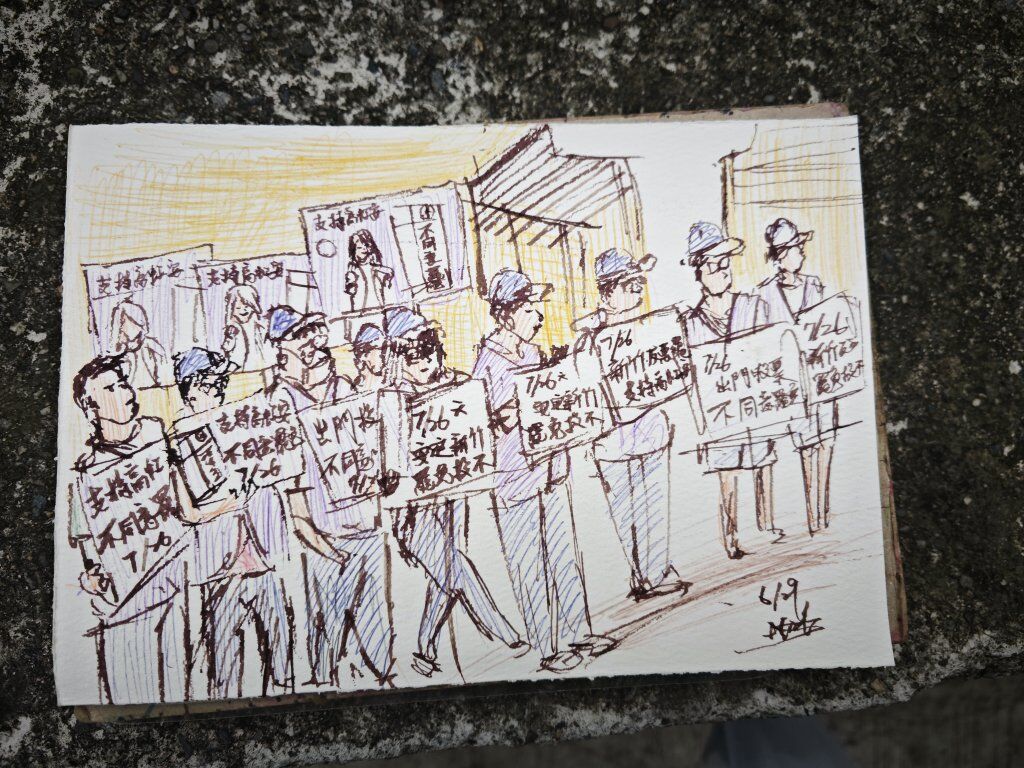 支持高虹安
不同意罷
支持高虹安
支持高虹安
支持高虹
不同意罷
7/26
支持高虹安
不同意罷免
7/26
出門投
不同意
7/26
安定新竹
罷免投不
7/26
安定新竹
罷免投不
7/26
新竹
支持高虹安
7/26
出門投票
不同意罷免
7/26
新竹
罷免投不
6/29